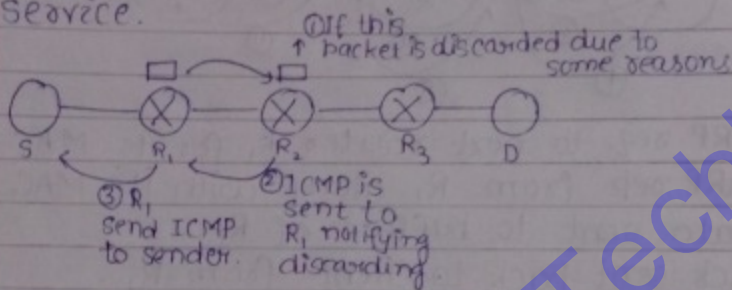 service.
①If this
packet is discarded due to
some reasons
S R₁ R₂ R₃ D
③R₁
Send ICMP
to sender.
②ICMP is
sent to
R₁ notifying
discarding
Tech